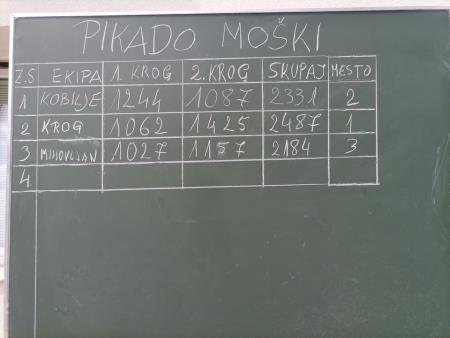 PIKADO MOŠKI
Z.Š EKIPA 1. KROG 2. KROG SKUPAJ MESTO
1 KOBILJE 1244 1087 2331 2
2 KROG 1062 1425 2487 1
3 1027 1157 2184 3
4